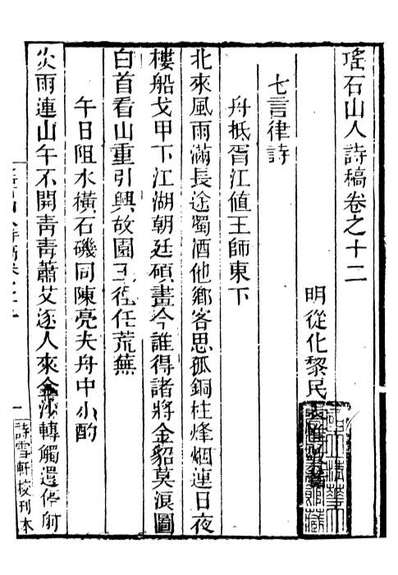 瑤石山人詩稿卷之十二
明從化黎民
七言律詩
舟抵胥江值王師東下
北來風雨滿長途蜀酒他鄉客思孤銅柱烽烟連日夜
樓船戈甲下江湖朝廷碩畫今誰得諸將金貂莫浪圖
白首看山重引興故園三徑任荒蕪
午日阻水橫石磯同陳亮夫舟中小酌
炎雨連山午不開青青蕭艾逐人來金沙轉觸遺
山人詩稿卷之十二
一
詩雪軒校刊本